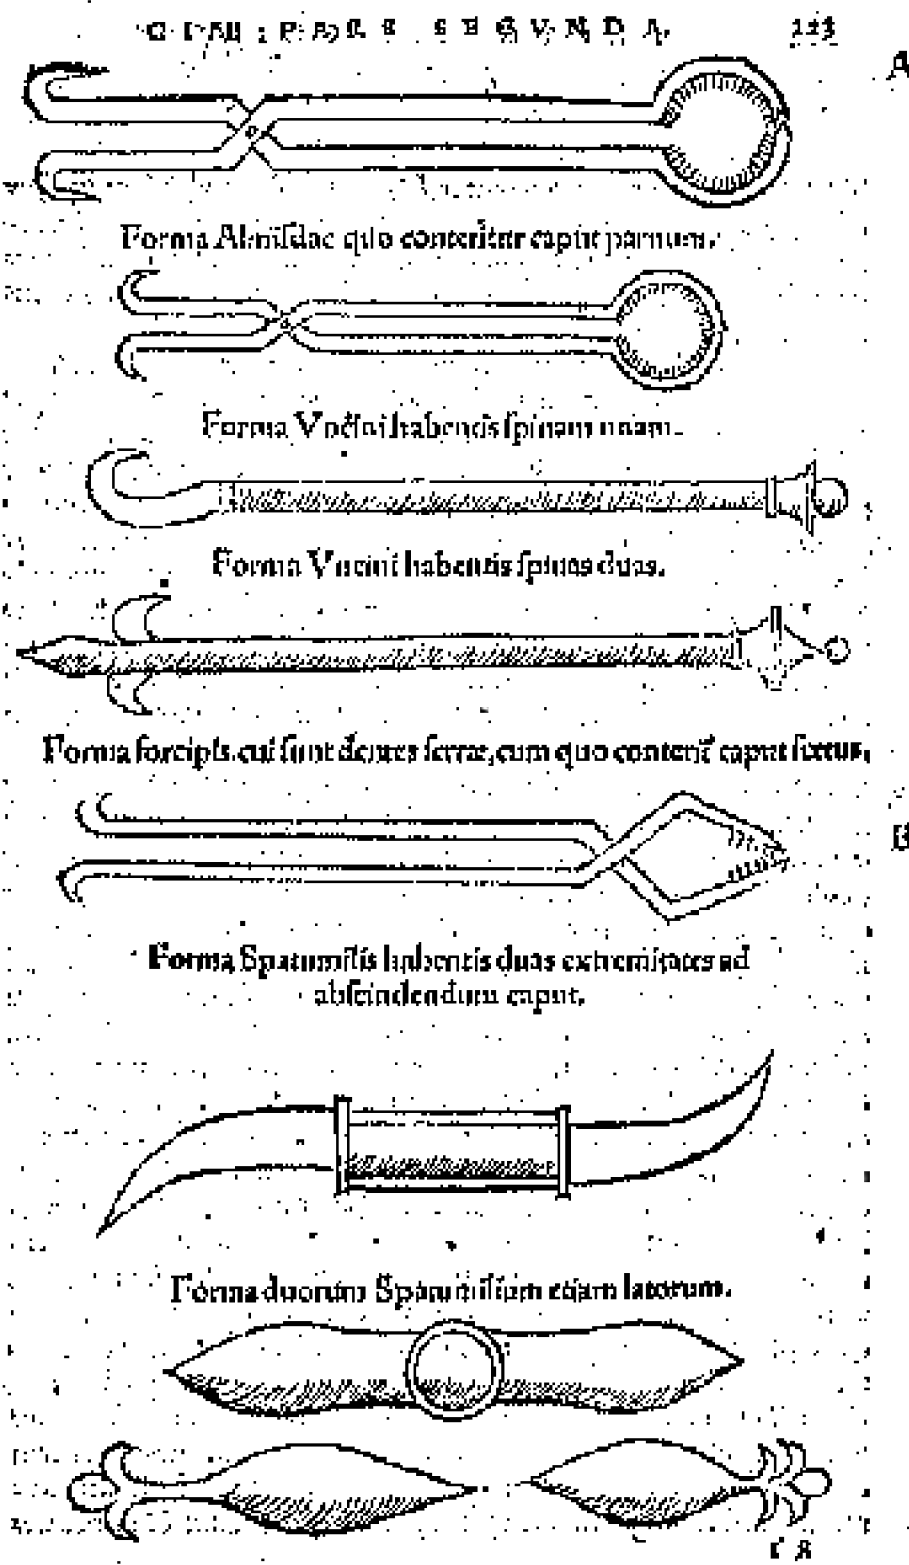 PARS SECVNDA. 223
A
Forma Almiſdac quo conterit̃ur caput paruum.
Forma Vncini habentis ſpinam unam.
Forma Vncini habentis ſpinas duas.
Forma forcipis, cui ſunt dentes ſerræ, cum quo conterit̃ caput fœtus.
B
Forma Spatumilis habentis duas extremitates ad
abſcindendum caput.
Forma duorum Spatumilium etiam latorum.